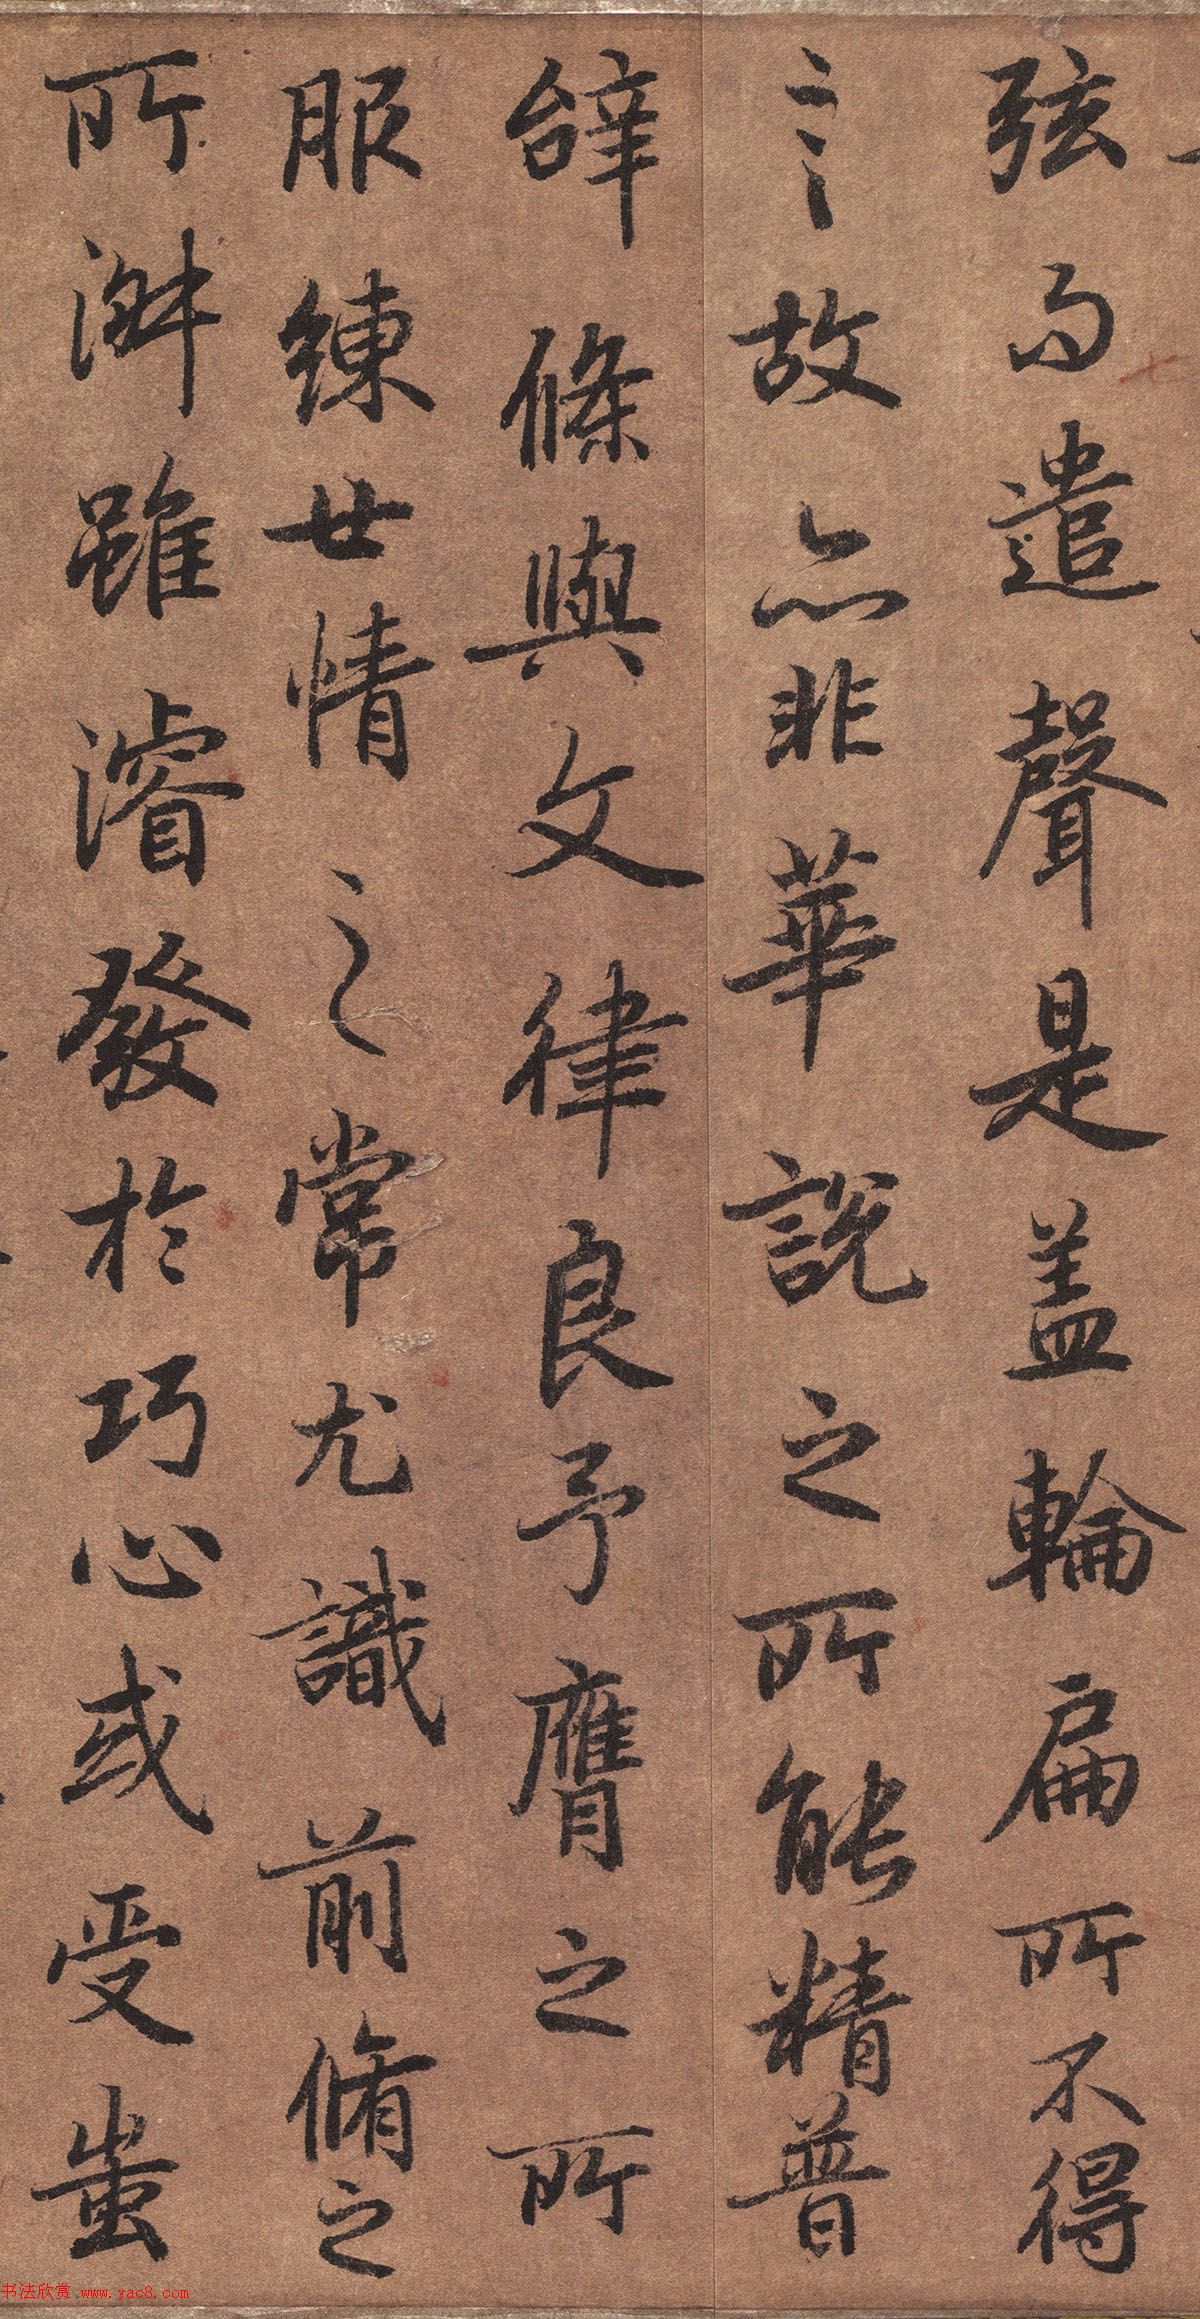 弦而遣聲是盖輪扁所不得
言故亦非華說之所能精普
辝條與文律良予膺之所
服練世情之常尤識前脩之
所淋雖濬發於巧心或受蚩
七
书法欣赏 www.yac8.com